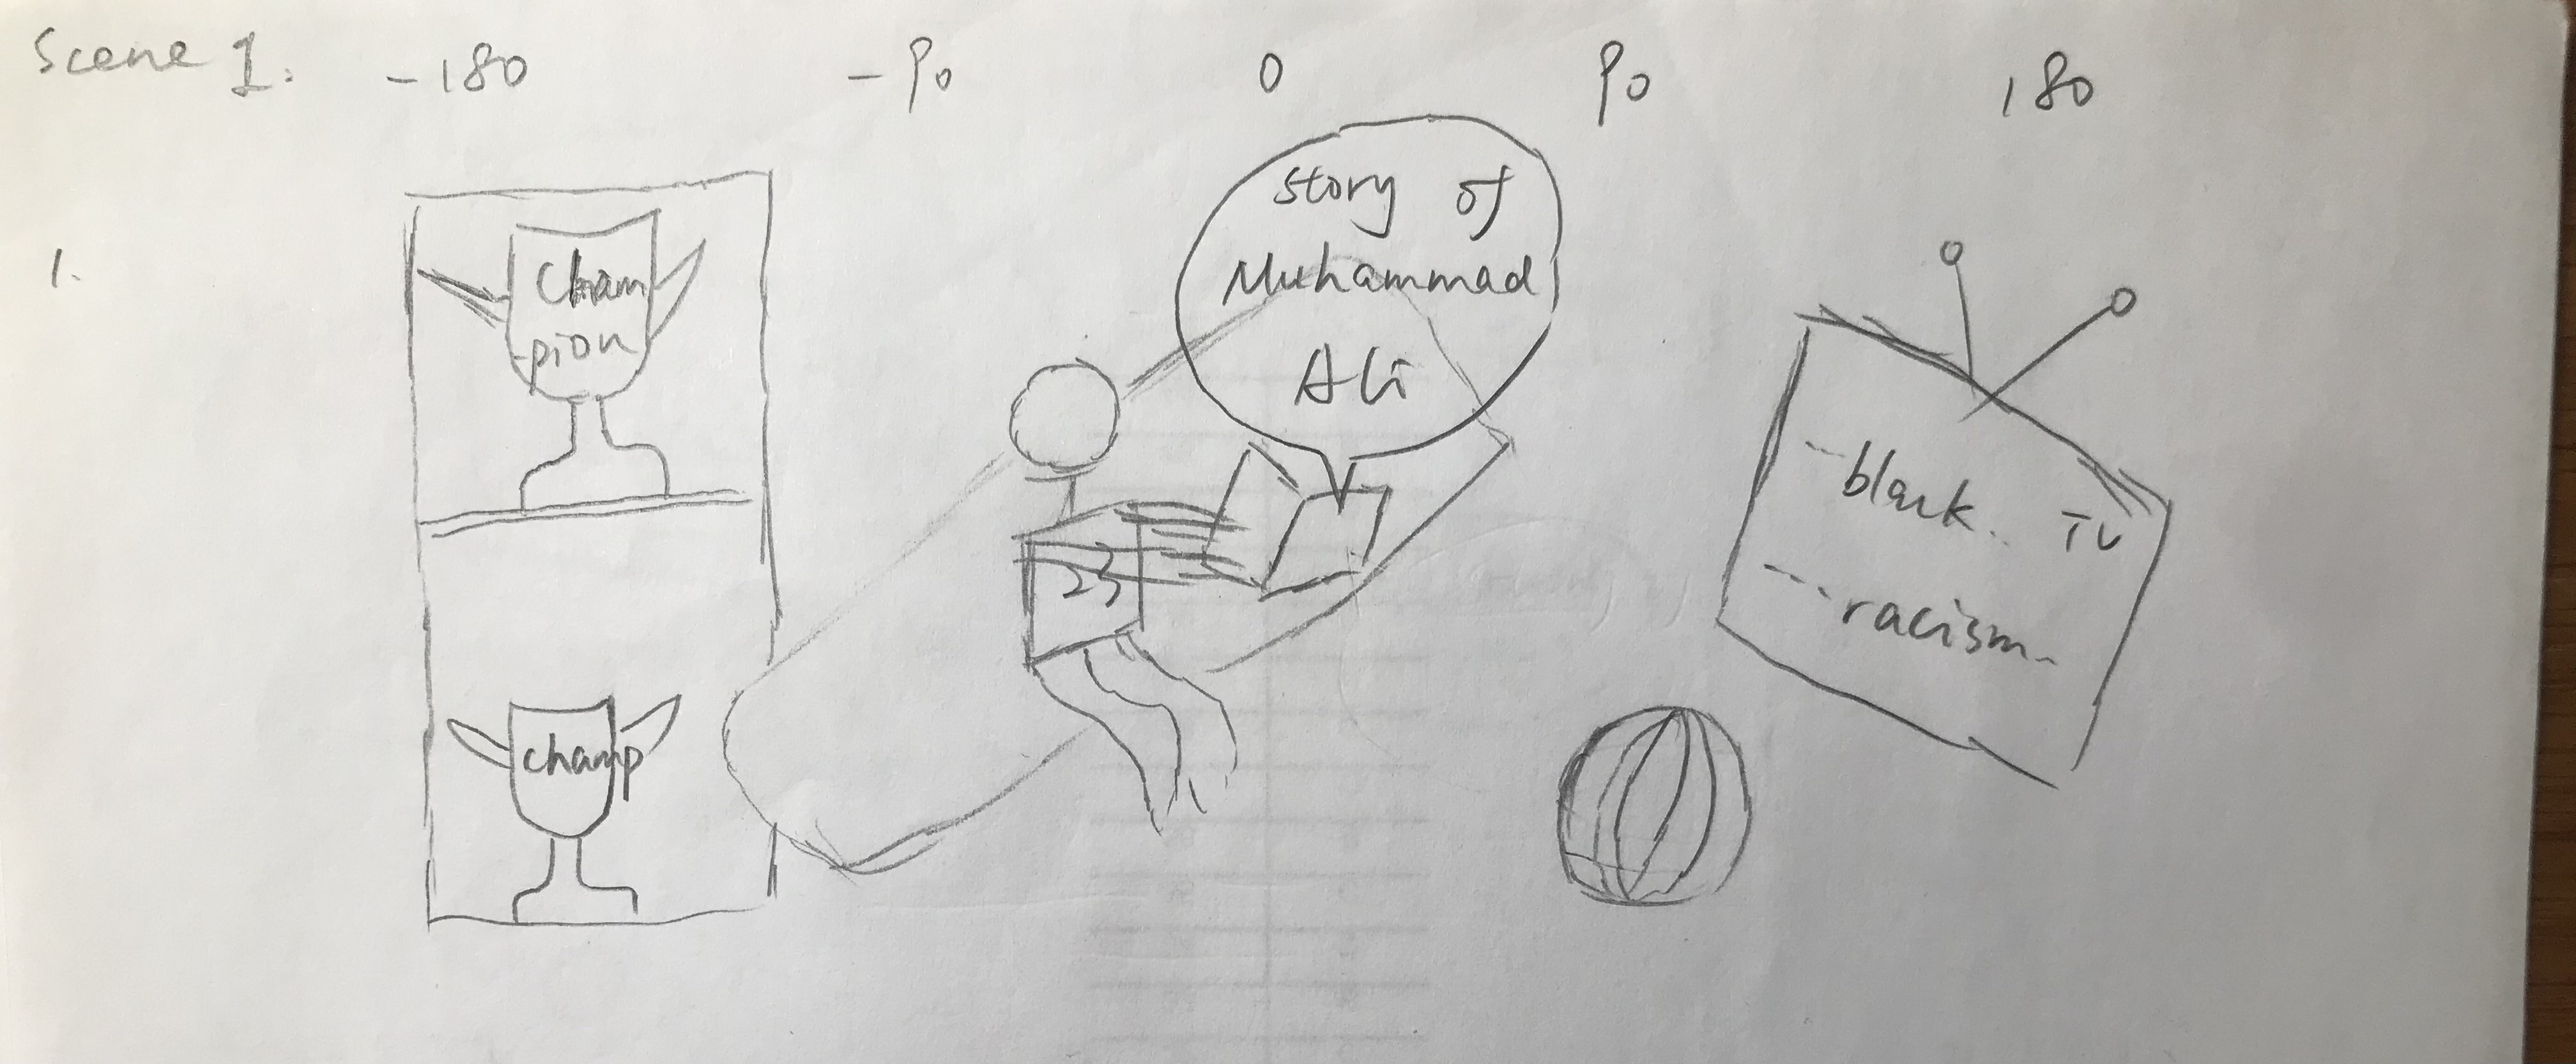 Scene 1.
-180
-90
0
90
180
1.
Cham
-pion
champ
story of
Muhammad
Ali
23
--black.. TV
---racism--